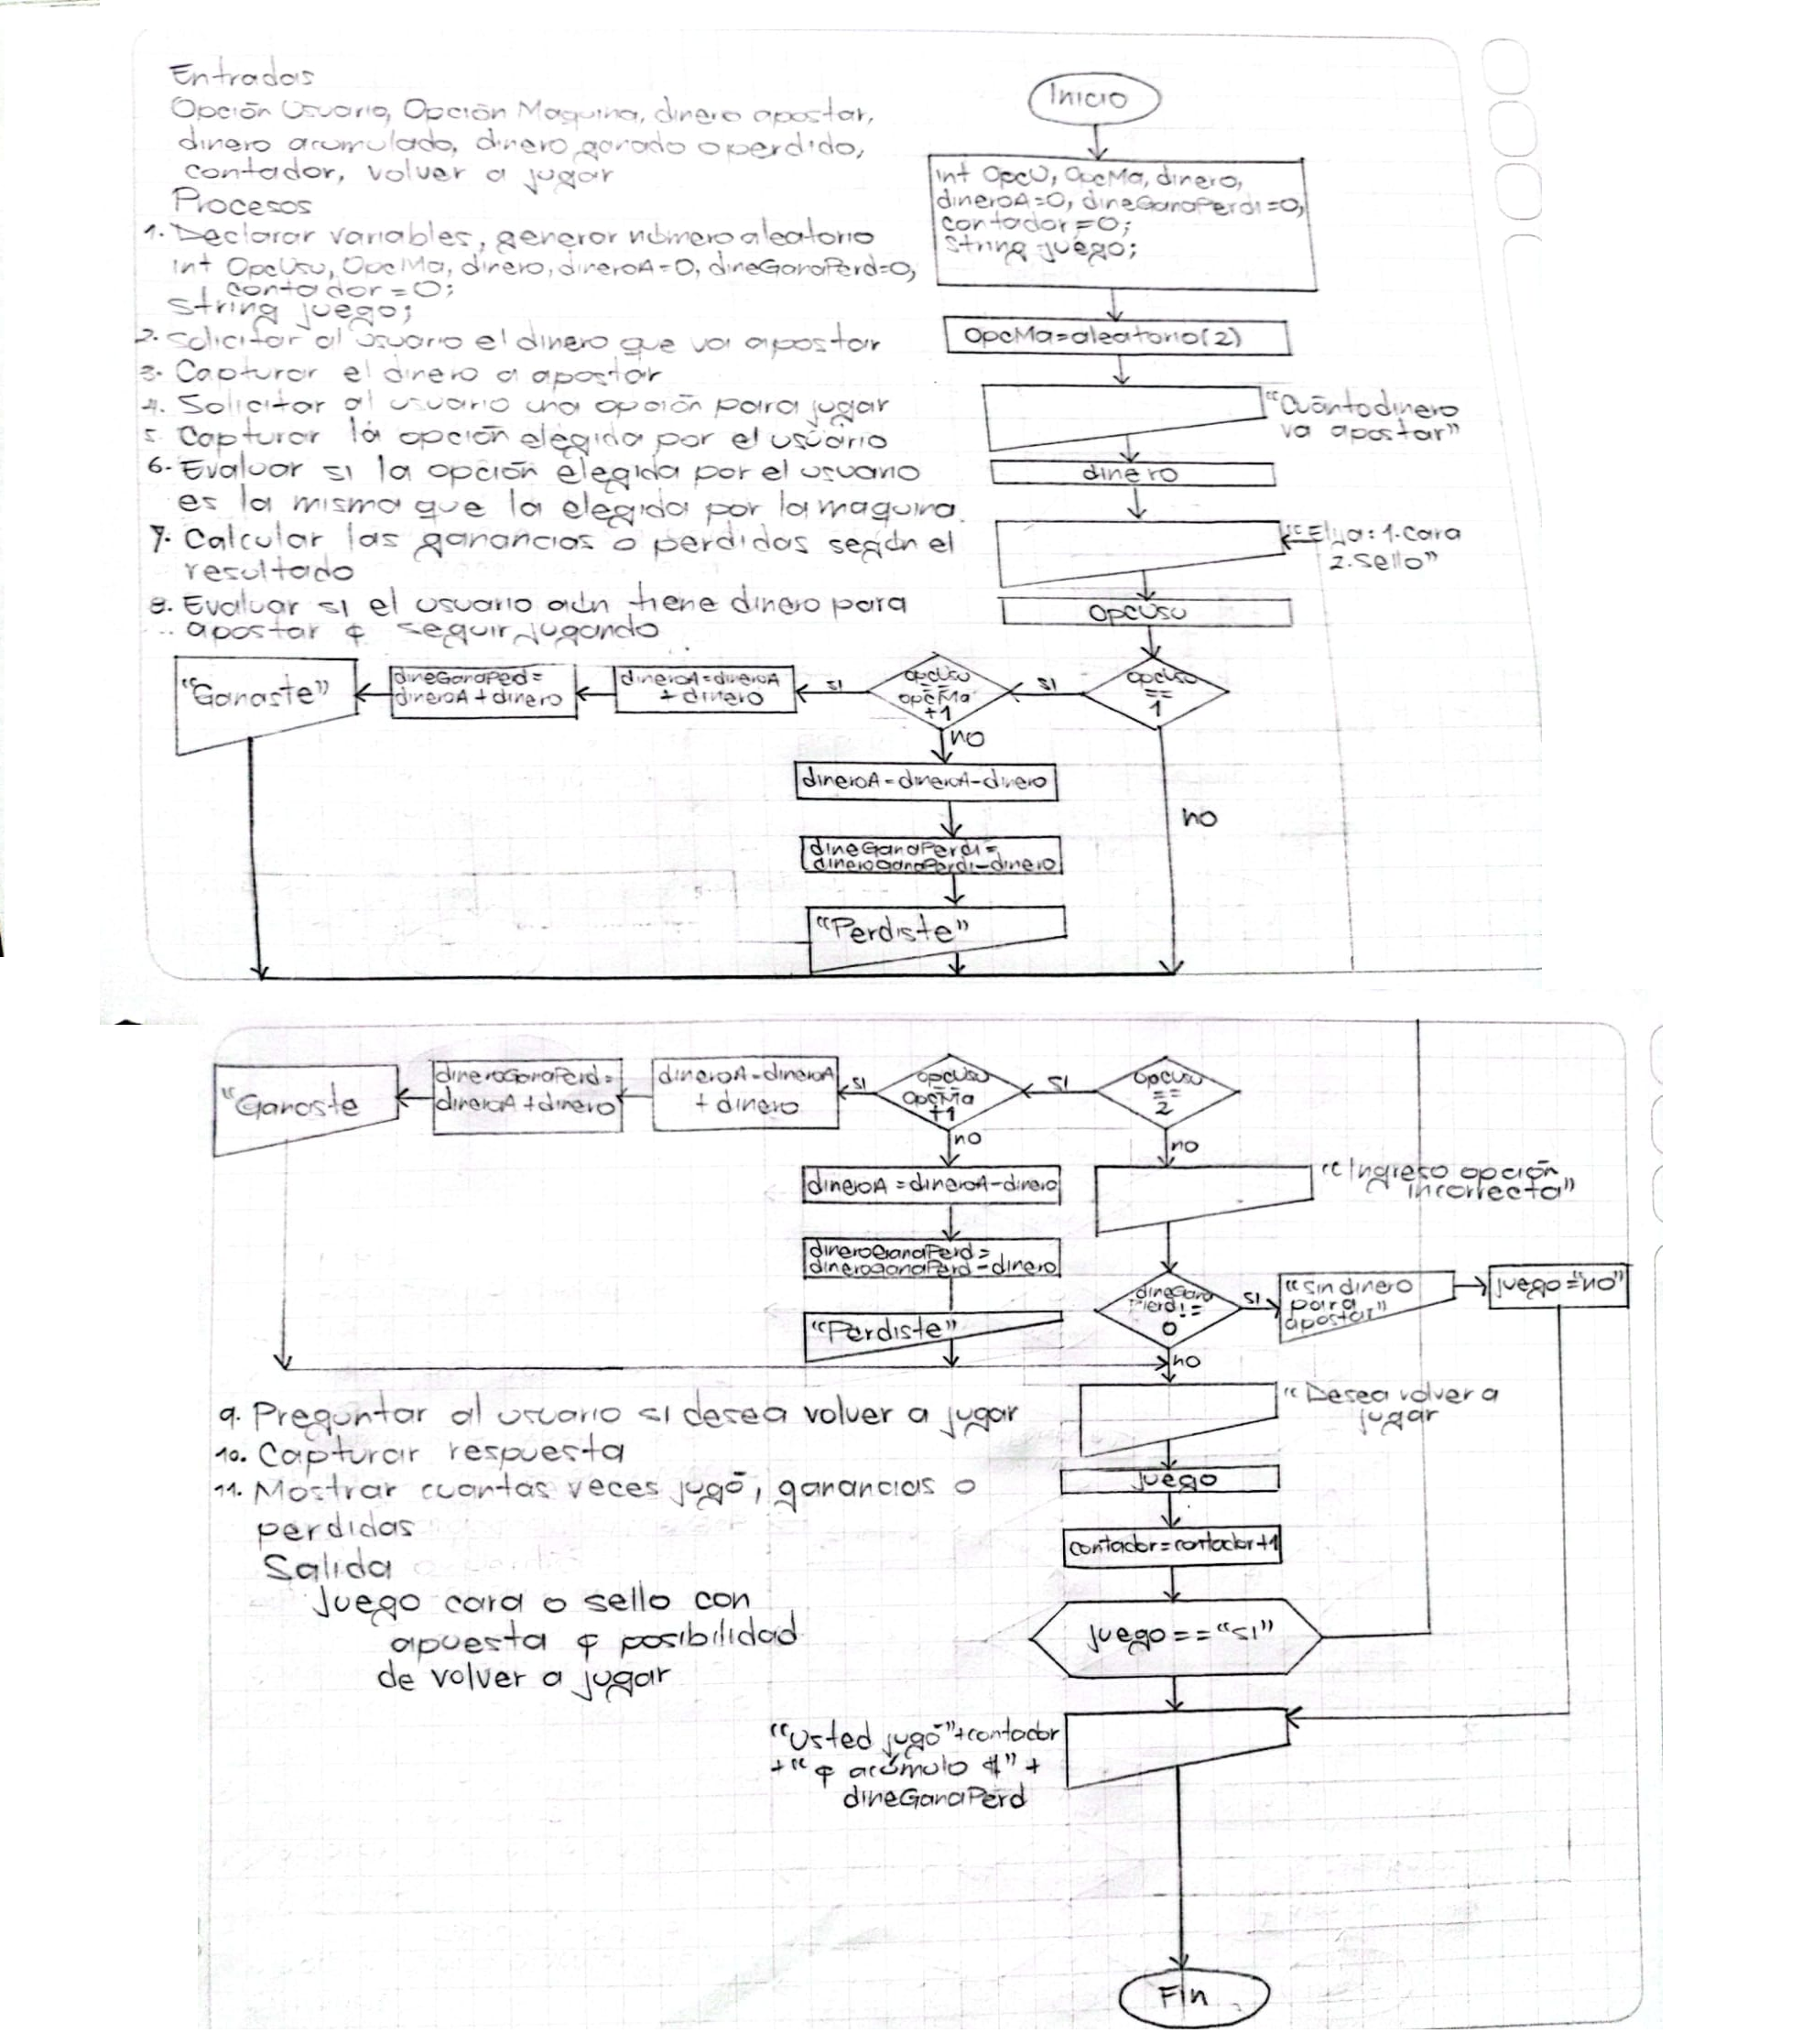 Entradas
Opción Usuario, Opción Maquina, dinero apostar,
dinero acumulado, dinero ganado o perdido,
contador, volver a jugar
Procesos
1. Declarar variables, generar número aleatorio
int OpcUsu, OpcMa, dinero, dineroA=0, dineGanaPerd=0,
contador=0;
string juego;
2. Solicitar al usuario el dinero que va apostar
3. Capturar el dinero a apostar
4. Solicitar al usuario una opción para jugar
5. Capturar la opción elegida por el usuario
6. Evaluar si la opción elegida por el usuario
es la misma que la elegida por la maquina.
7. Calcular las ganancias o perdidas según el
resultado
8. Evaluar si el usuario aún tiene dinero para
apostar y seguir jugando
Inicio
int OpcU, OpcMa, dinero,
dineroA=0, dineGanaPerdi=0,
contador=0;
String juego;
OpcMa=aleatorio(2)
"Cuánto dinero
va apostar"
dinero
"Elija: 1.cara
2.sello"
OpcUsu
opcUso
==
1
si
opcUso
==
opcMa
+1
si
dineroA=dineroA
+dinero
dineGanaPerd=
dineroA+dinero
"Ganaste"
no
dineroA=dineroA-dinero
dineGanaPerdi=
dineroGanaPerdi-dinero
"Perdiste"
no
opcUso
==
2
si
opcUso
==
OpcMa
+1
si
dineroA=dineroA
+dinero
dineroGanaPerd=
dineroA+dinero
"Ganaste
no
dineroA=dineroA-dinero
dineroGanaPerd=
dineroganaPerd-dinero
"Perdiste"
no
"Ingreso opción
incorrecta"
dineGana
Perdi=
0
si
"sin dinero
para
apostar"
juego="no"
no
"Desea volver a
jugar
juego
contador=contador+1
juego=="si"
"Usted jugó"+contador
+"y acúmulo $"+
dineGanaPerd
Fin
9. Preguntar al usuario si desea volver a jugar
10. Capturar respuesta
11. Mostrar cuantas veces jugó, ganancias o
perdidas
Salida
Juego cara o sello con
apuesta y posibilidad
de volver a jugar